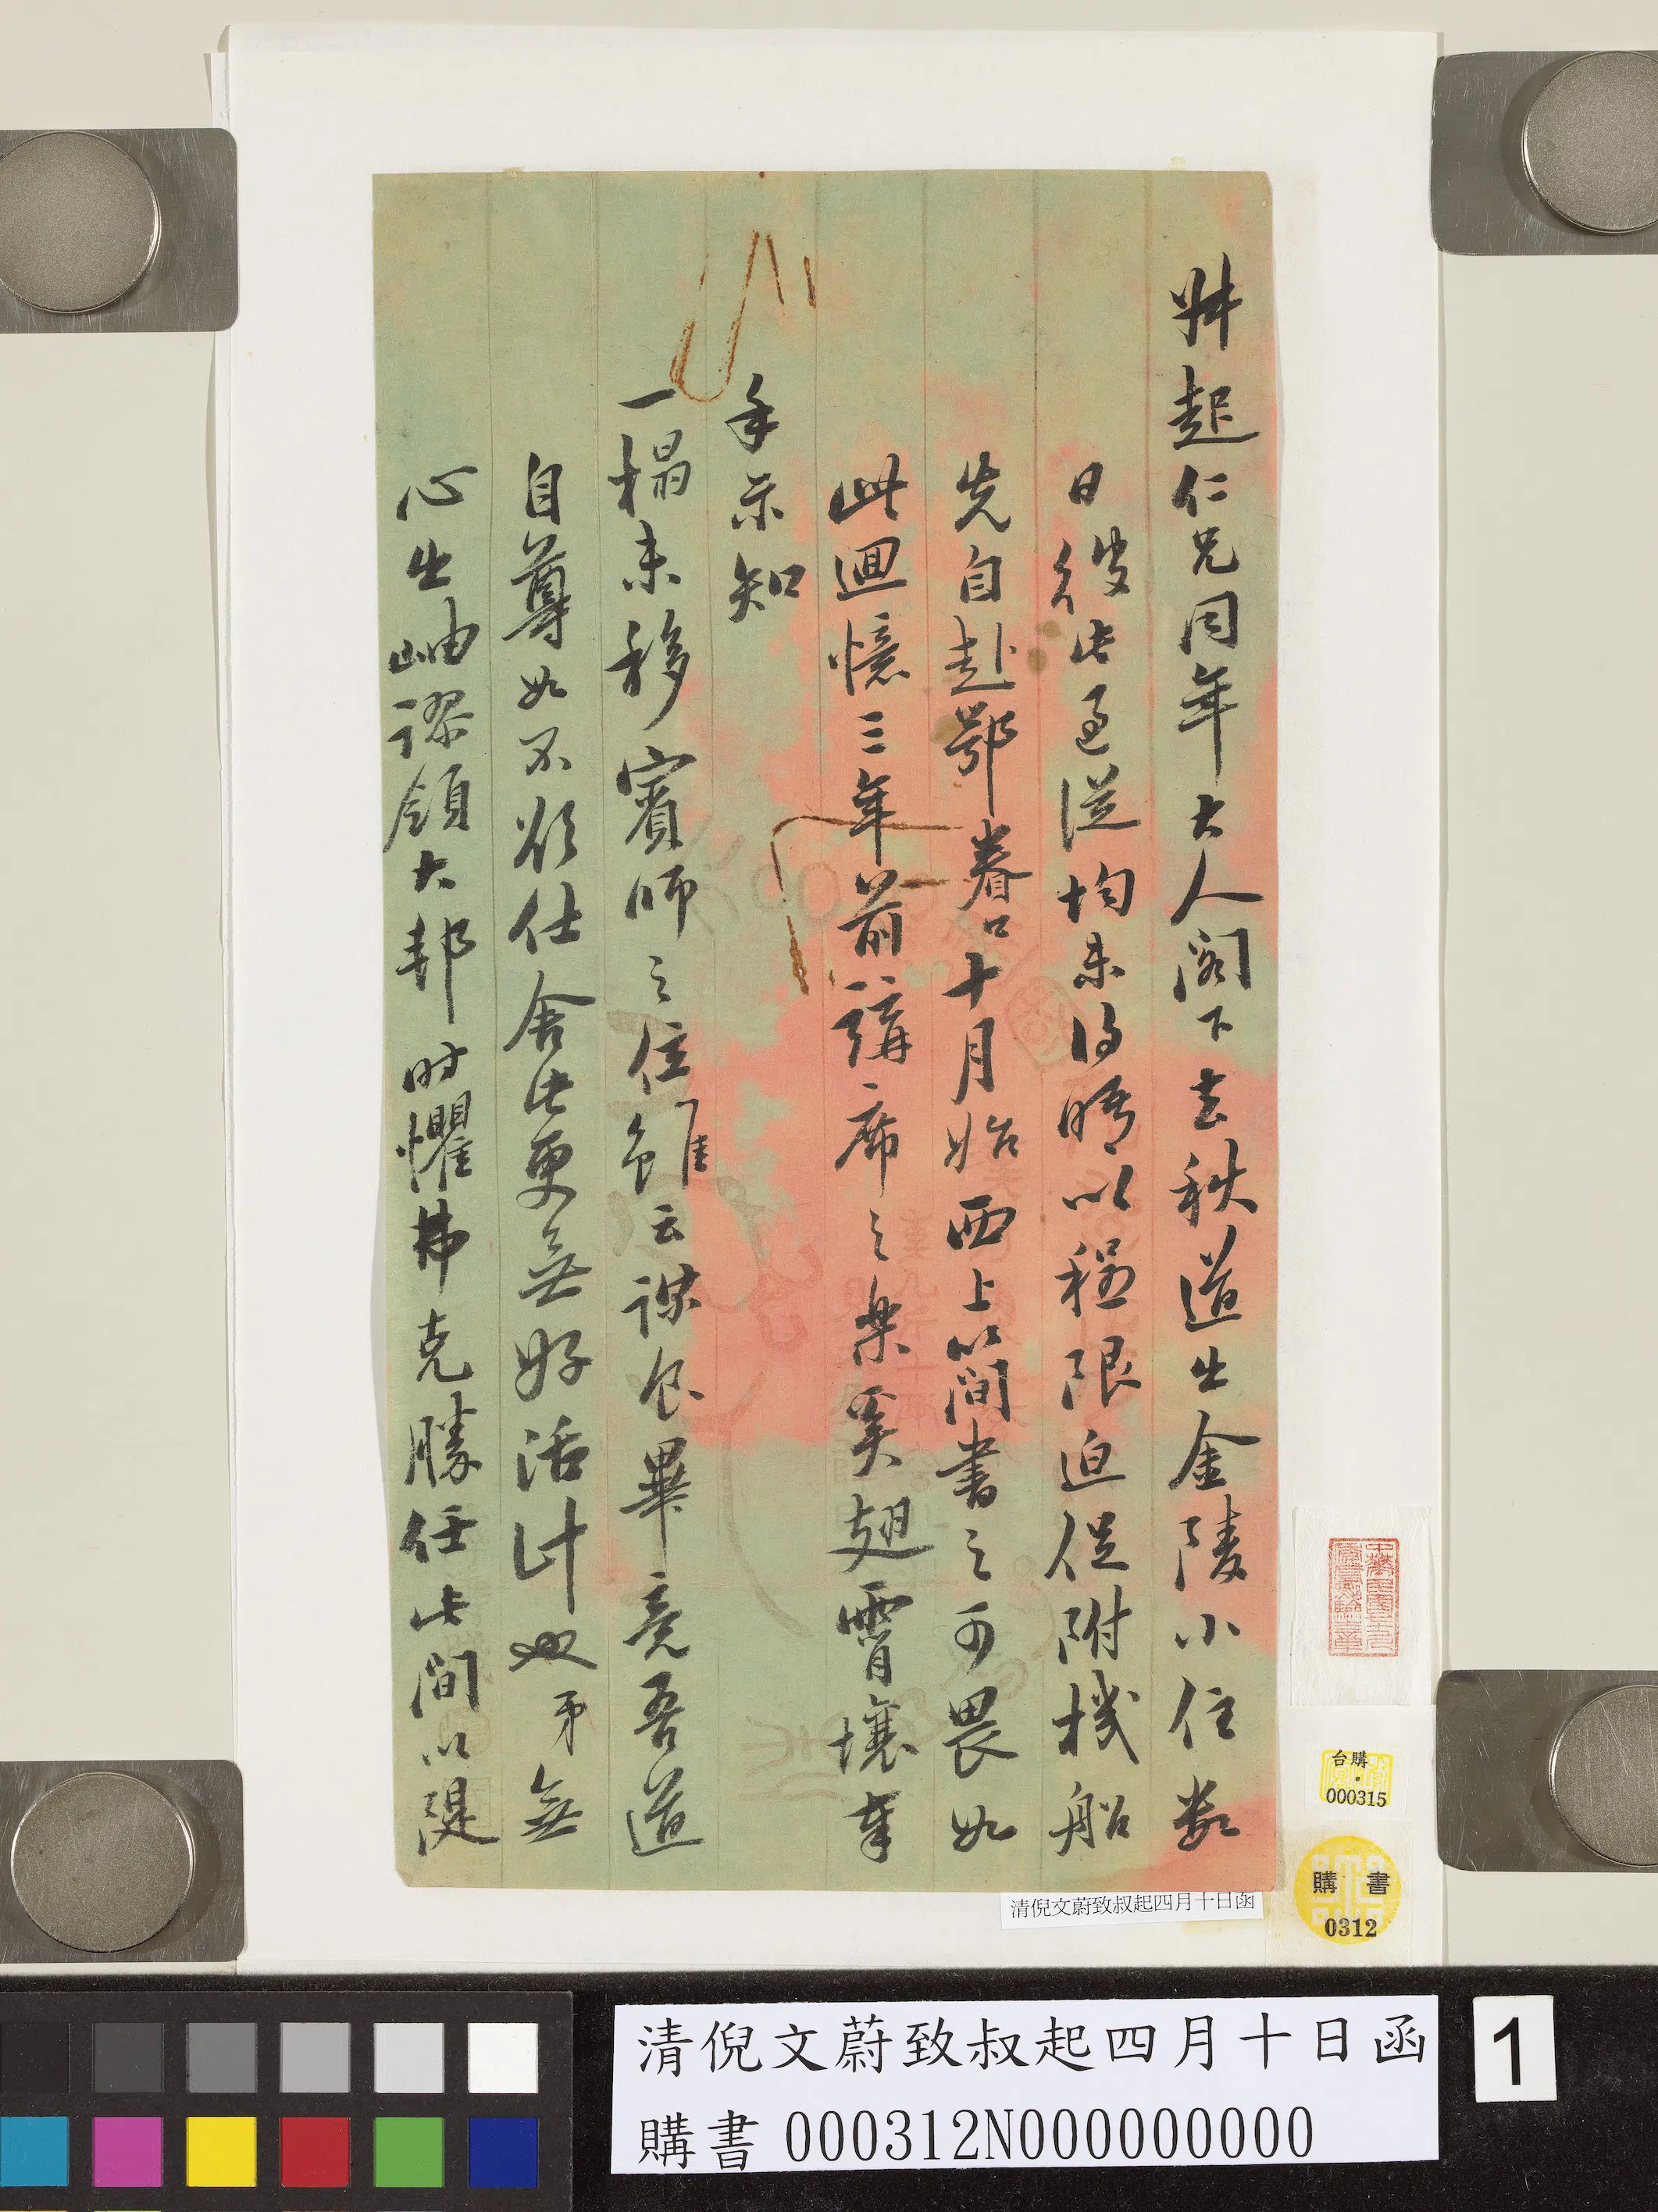 叔起仁兄同年大人閣下去秋道出金陵小住數
日彼此過從均未得晤以程限迫促附機船
先自赴鄂眷口十月始西上簡書之可畏如
此迴憶三年前講席之樂奚翅霄壤奉
手示知
一榻未移賓師之位雖云謀食畢竟吾道
自尊如不欲仕舍此更無好活計也弟無
心出岫謬領大邦時懼弗克勝任此間以隄
清倪文蔚致叔起四月十日函
台購
000315
購書
0312
清倪文蔚致叔起四月十日函
購書 000312N000000000
1